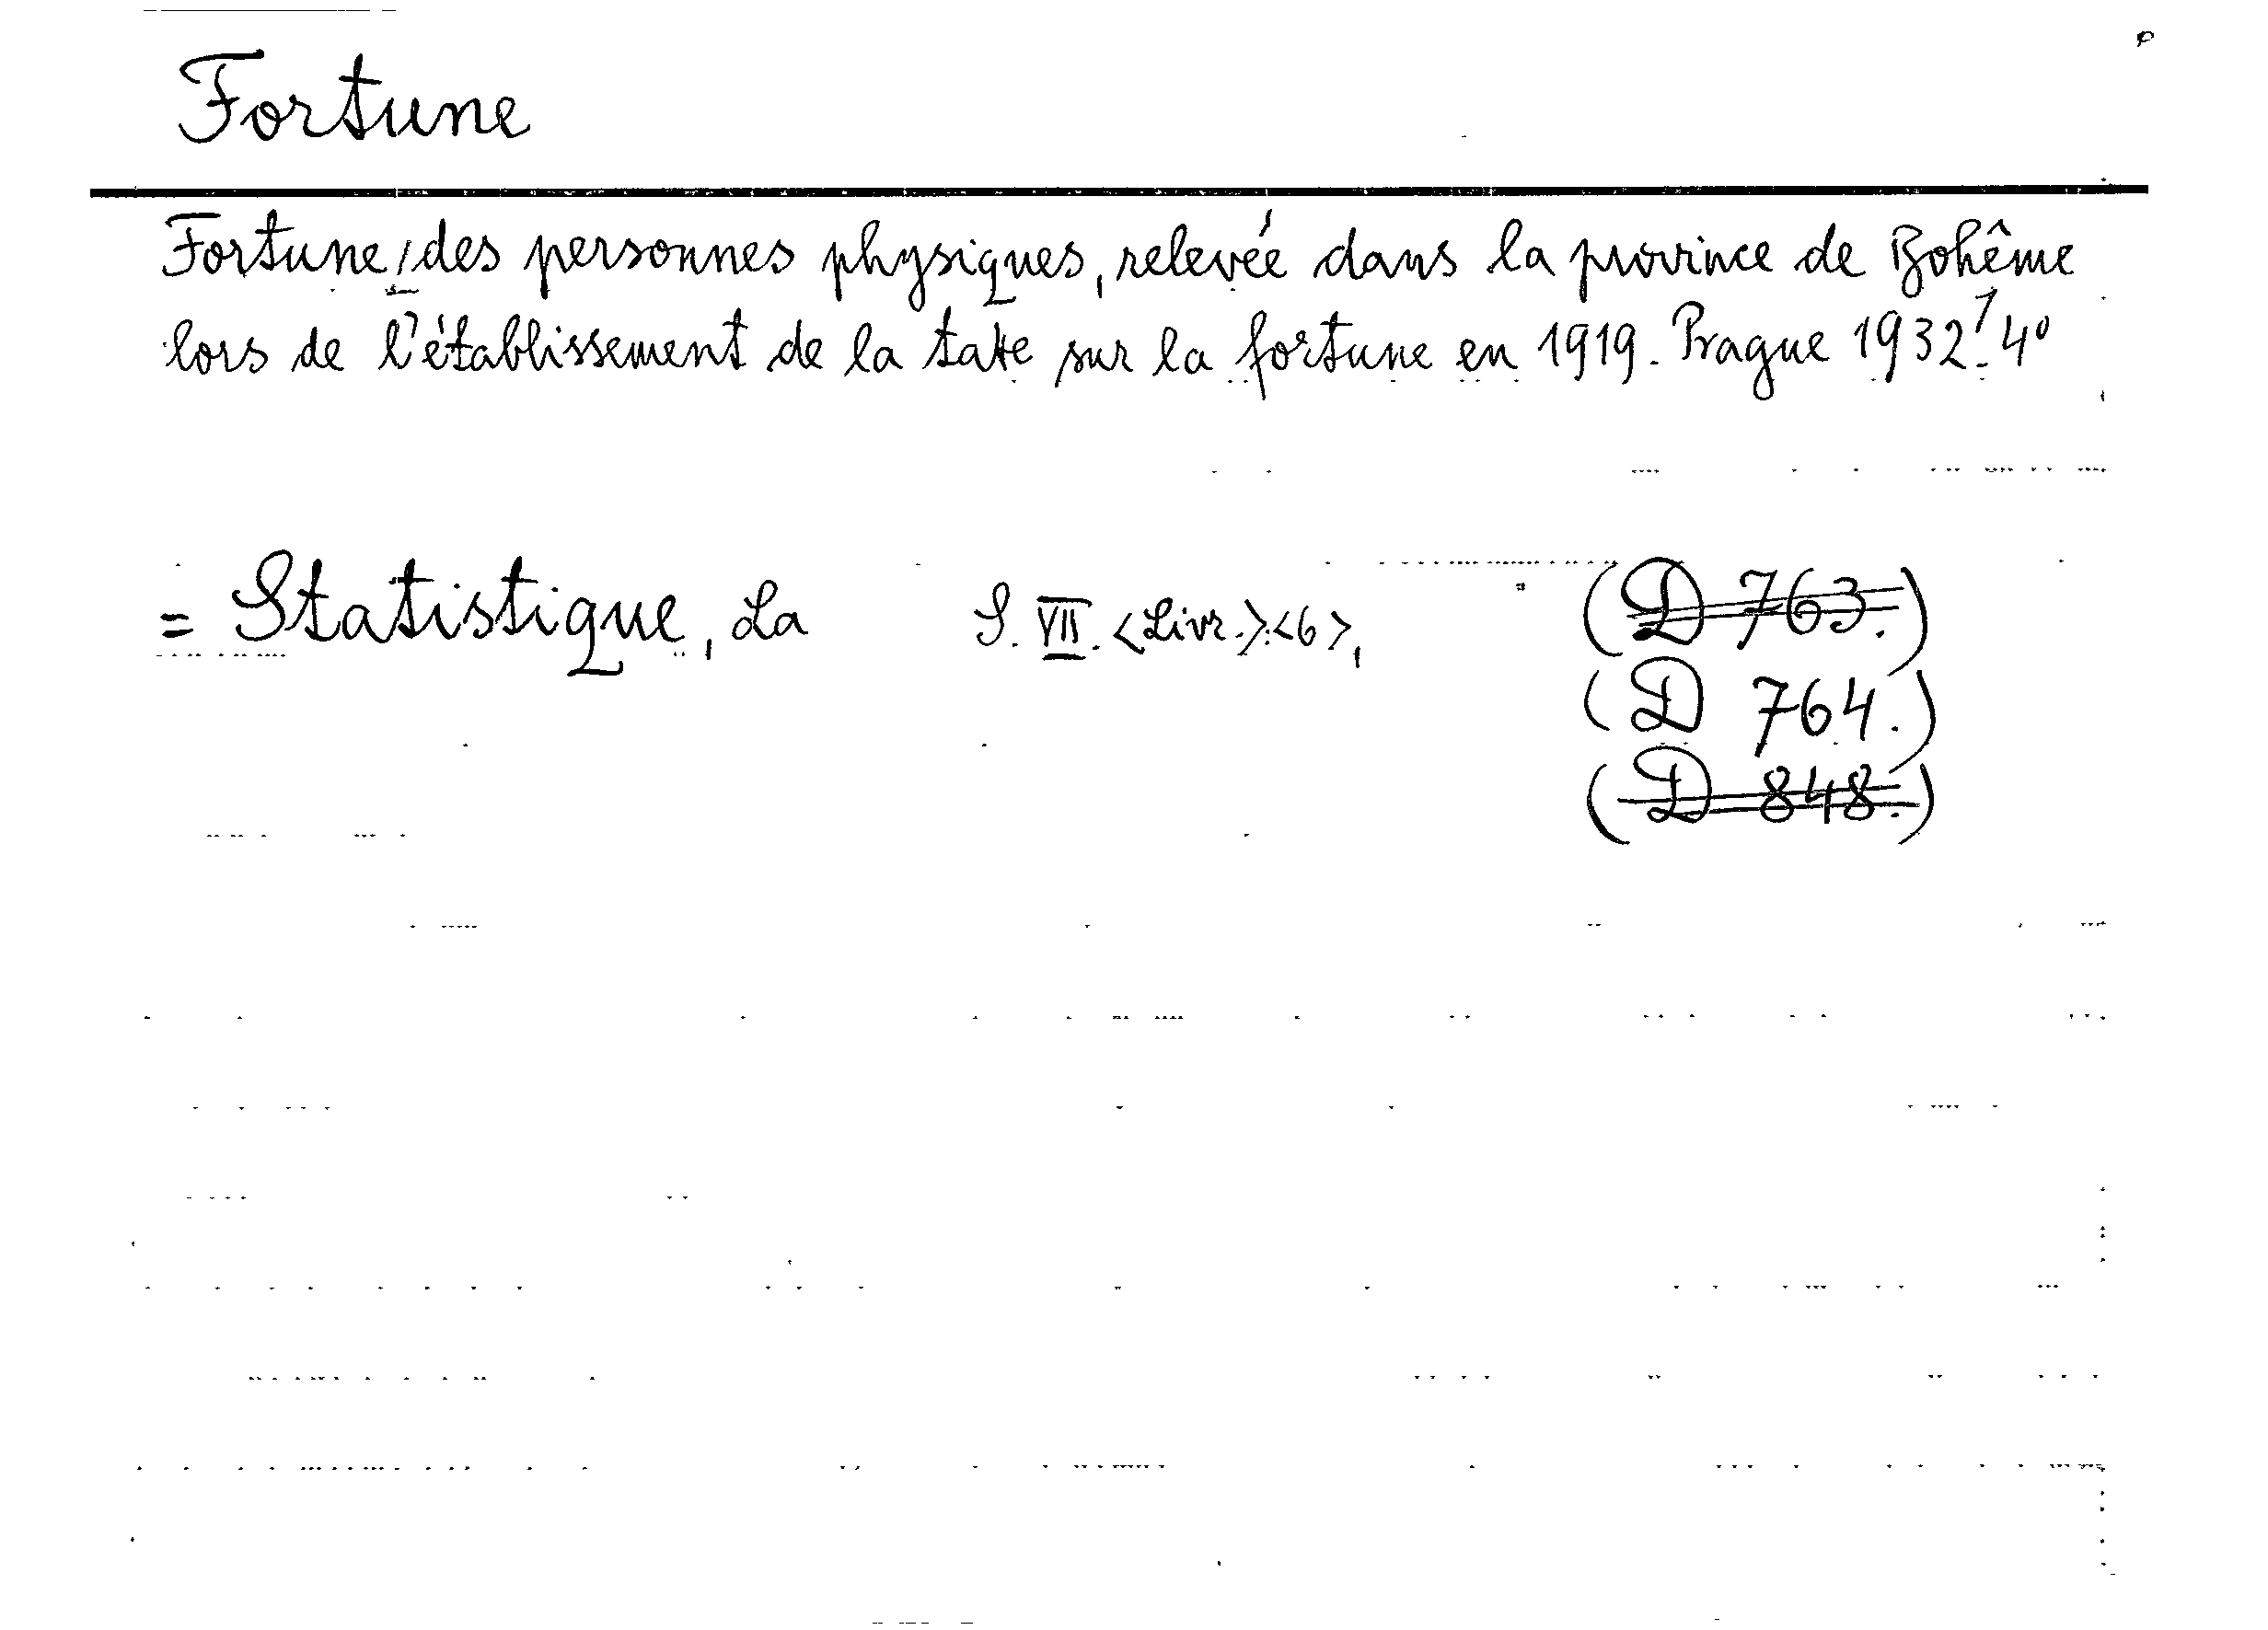 Fortune
Fortune / des personnes physiques, relevée dans la province de Bohême
lors de l'établissement de la taxe sur la fortune en 1919. Prague 1932. 4°
= Statistique, La S. VII. <Livr.> <6>, (D 763.)
(D 764.)
(D 848.)